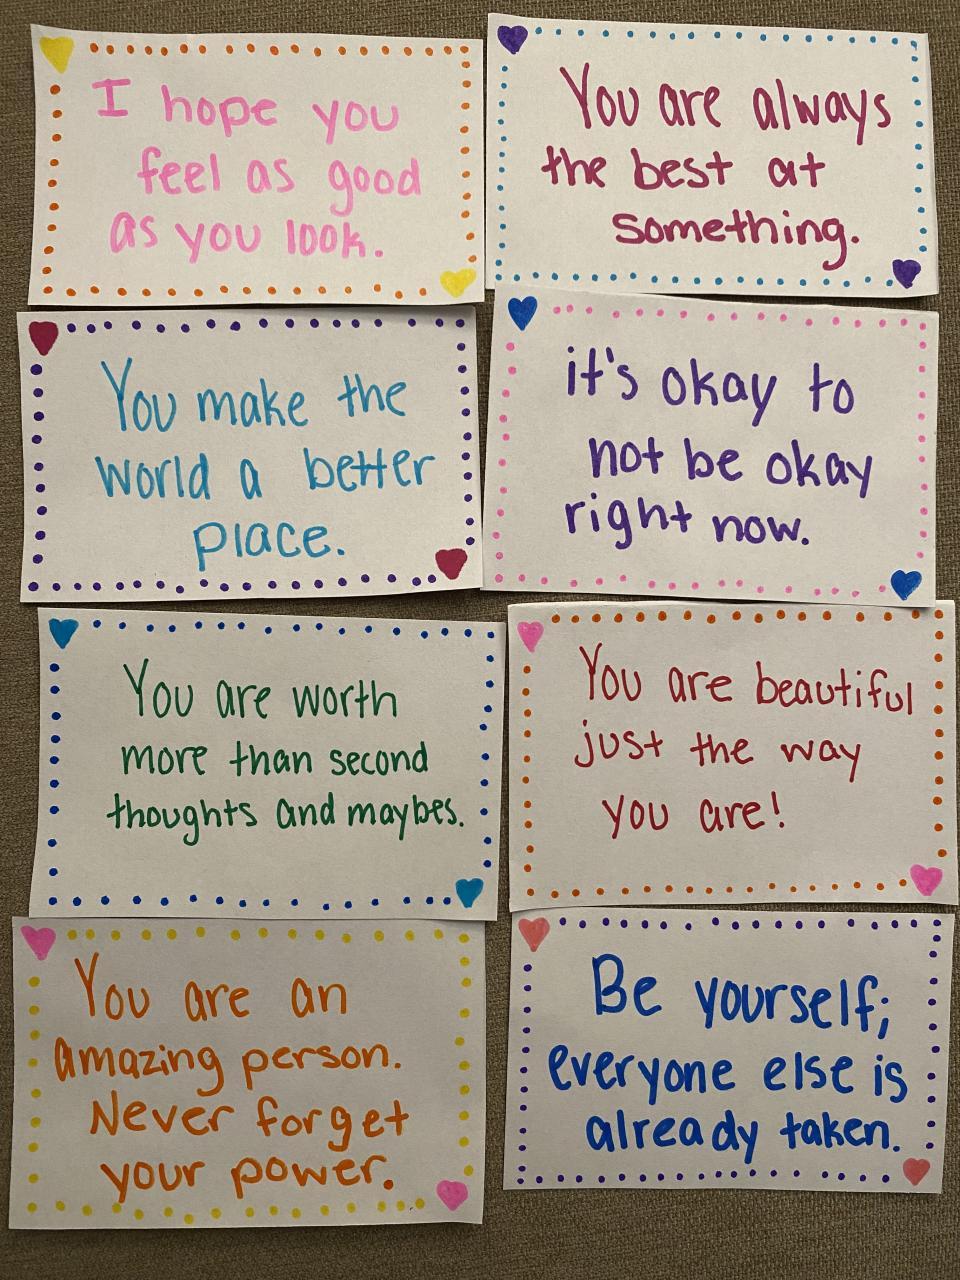 I hope you
feel as good
as you look.
You are always
the best at
something.
You make the
world a better
place.
it's okay to
not be okay
right now.
You are worth
more than second
thoughts and maybes.
You are beautiful
just the way
you are!
You are an
amazing person.
Never forget
your power.
Be yourself;
everyone else is
already taken.